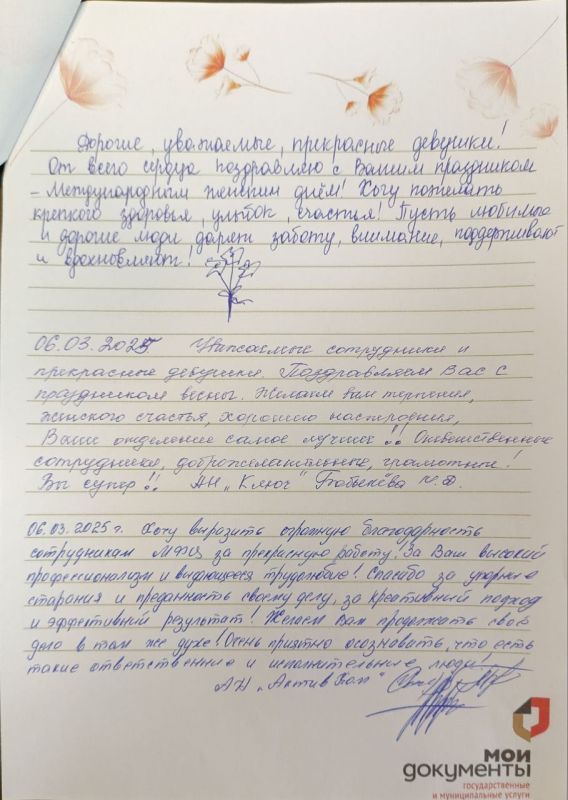 Дорогие, уважаемые, прекрасные девушки!
От всего сердца поздравляю с Вашим праздником
- Международным женским днём! Хочу пожелать
крепкого здоровья, улыбок, счастья! Пусть любимые
и дорогие люди дарят заботу, внимание, поддерживают
и вдохновляют!
06.03.2025. сотрудники и
прекрасные девушки. Поздравляем Вас с
праздником весны. Желаем Вам терпения,
женского счастья, хорошего настроения,
Ваше отделение самое лучшее!! Ответственные
сотрудники, доброжелательные, грамотные!
Вы супер!! АН "Ключ"
06.03.2025 г. Хочу выразить огромную благодарность
сотрудникам МФЦ за прекрасную работу! За Ваш высокий
профессионализм и выдающееся трудолюбие! Спасибо за упорные
старания и преданность своему делу, за креативный подход
и эффективный результат! Желаем Вам продолжать своё
дело в том же духе! Очень приятно осознавать, что есть
такие ответственные и исполнительные люди
АН "Актив
МОИ
ДОКУМЕНТЫ
государственные
и муниципальные услуги